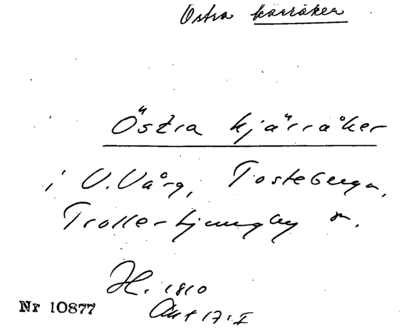 Östra kärråker
Östra kjärråker
i V. Vång, Tosteberga,
Trolle-Ljungby
H. 1810
Akt 17:I
Nr 10877